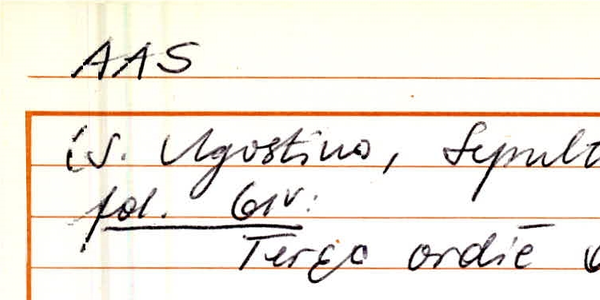 AAS
S. Agostino, Sepult
fol. 61v:
Terço ordiē